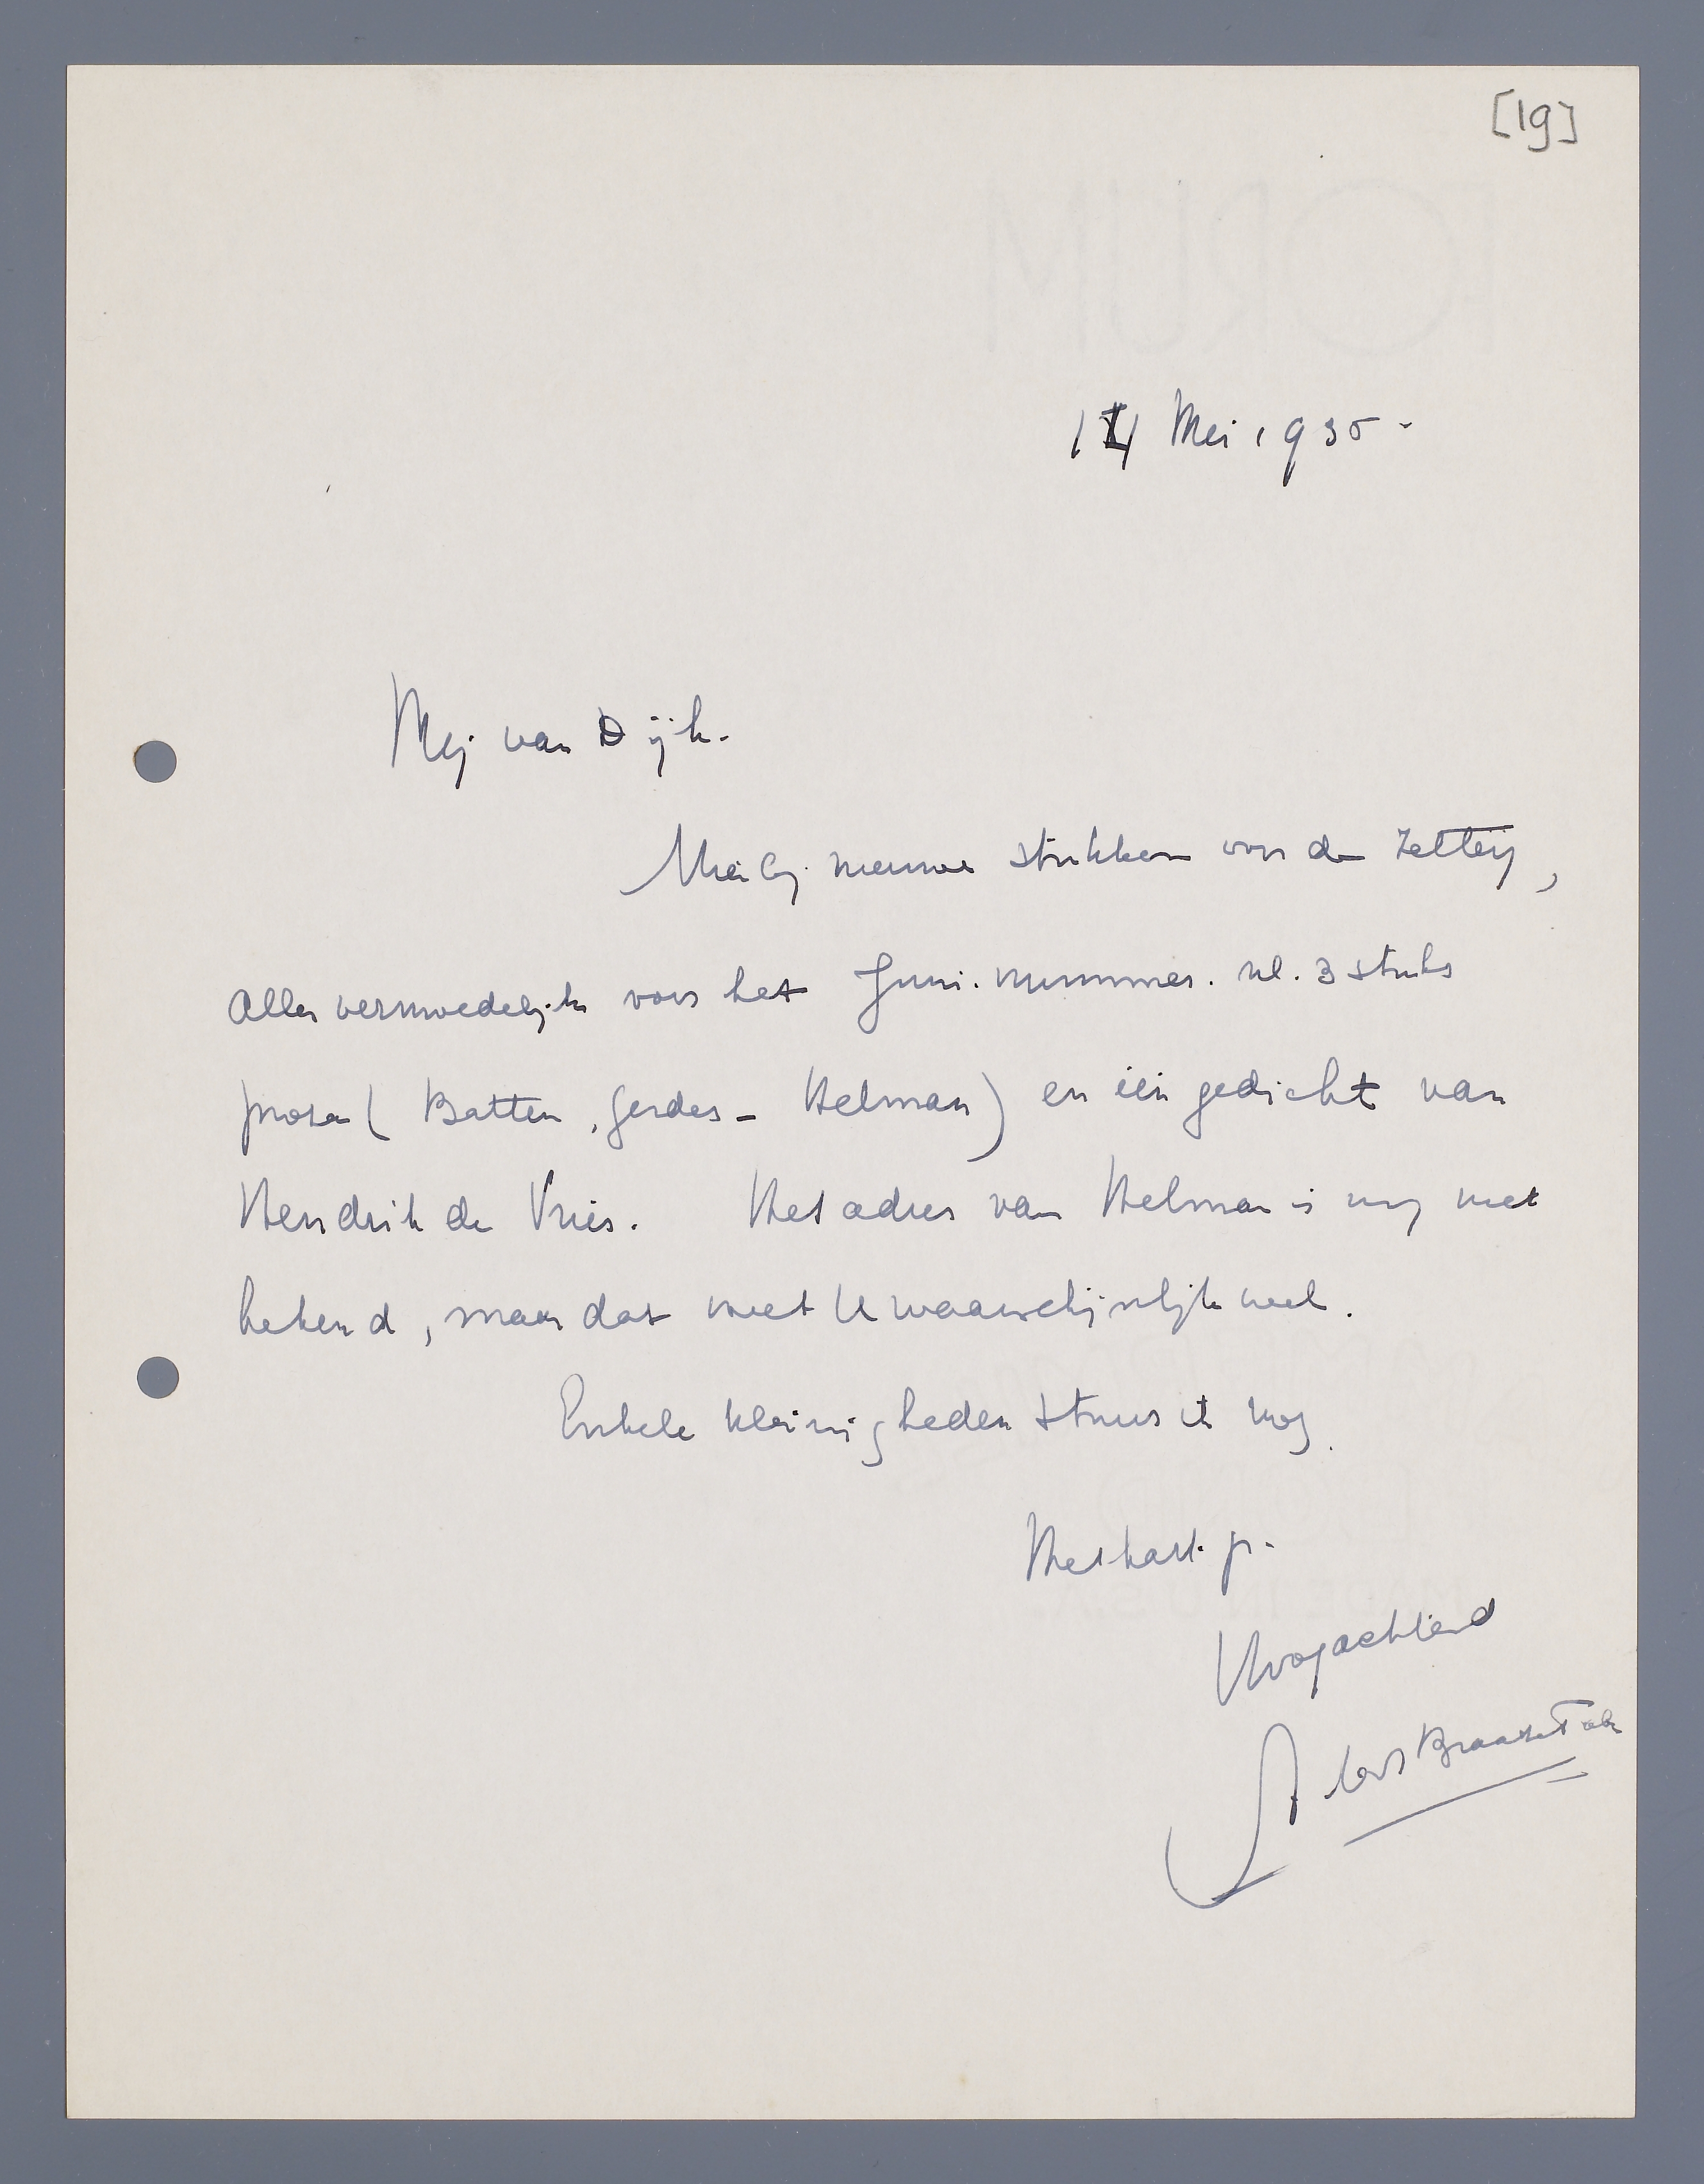 [19]
14 Mei 1935-
Mej van Dijk.
Hierbij nieuwe stukken voor de Zetterij,
Alles vermoedelijk voor het Juni-nummer. nl. 3 stuks
proza ( Batten, Gerdes - Helman) en één gedicht van
Hendrik de Vries. Het adres van Helman is mij niet
bekend, maar dat weet U waarschijnlijk wel.
Enkele kleinigheden stuur ik nog.
Met hart. gr.
Hoogachtend